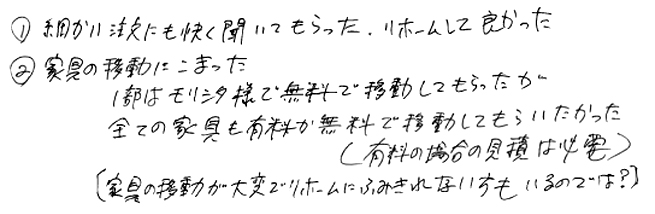 ① 細かい注文にも快く聞いてもらった. リホームして良かった
② 家具の移動にこまった
1部はモリシタ様で無料で移動してもらったが
全ての家具も有料か無料で移動してもらいたかった
(有料の場合の見積は必要)
[家具の移動が大変でリホームにふみきれない方もいるのでは?]